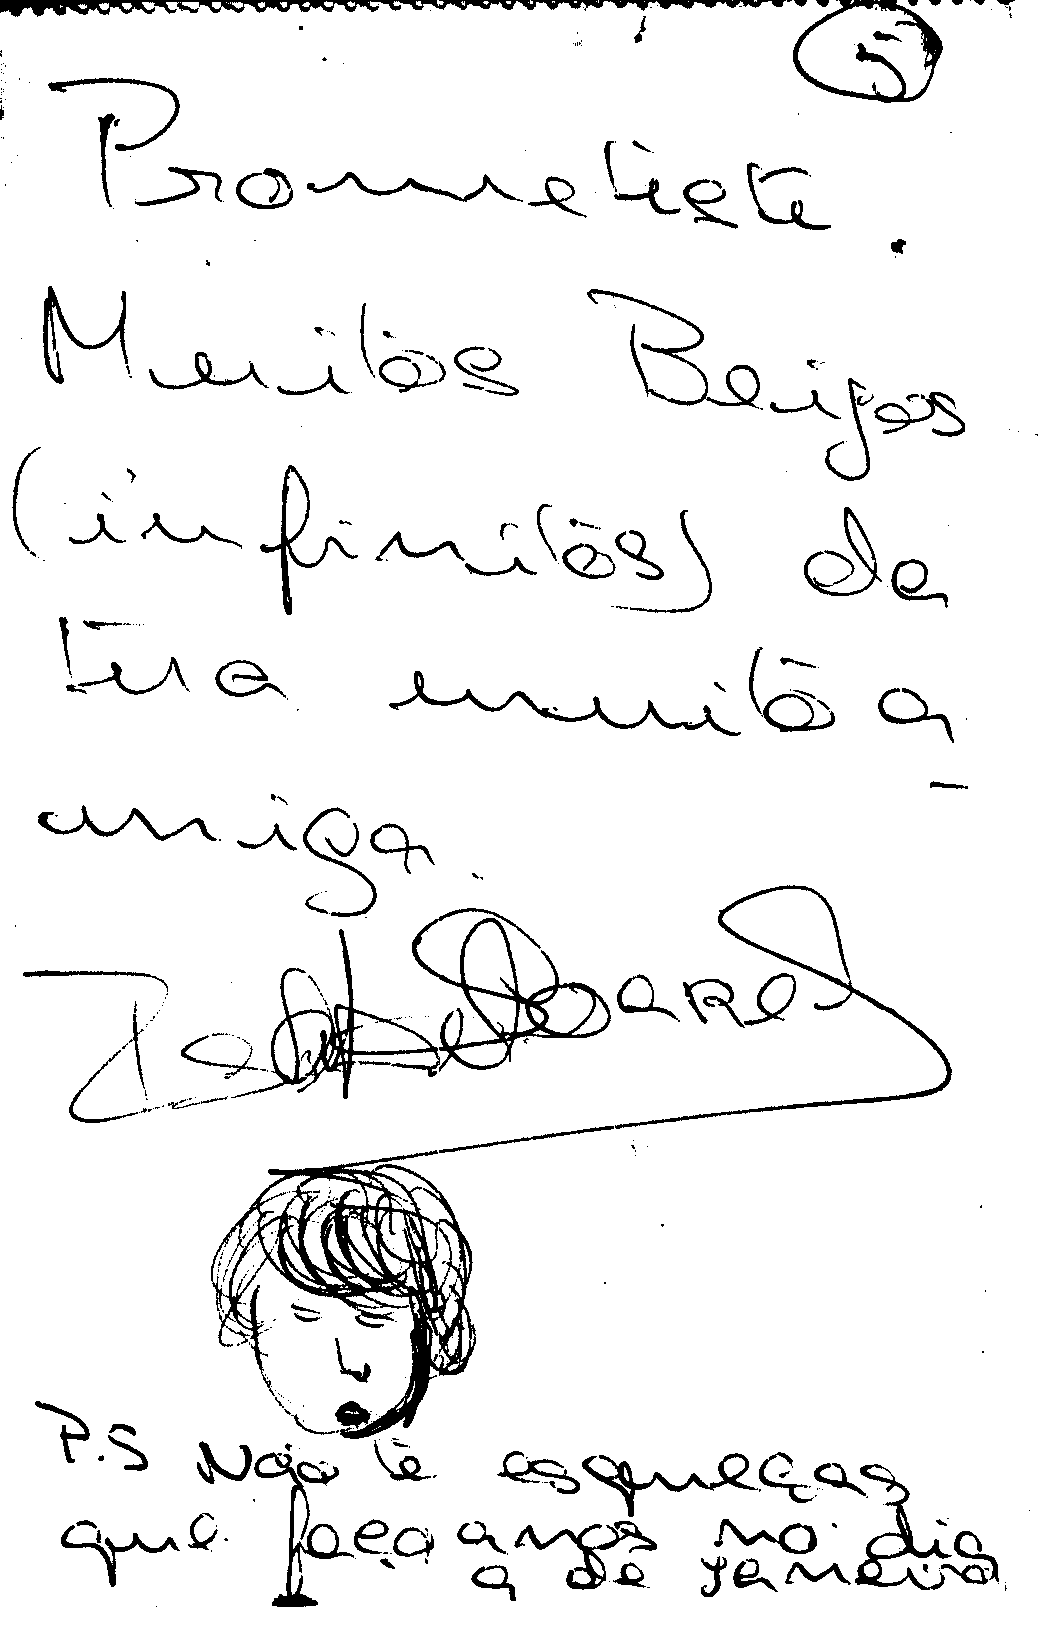 5
Prometeste.
Muitos Beijos
(infinitos) de
tua muito a-
amiga.
Soares
P.S Não te esqueças
que faço anos no dia
9 de Janeiro